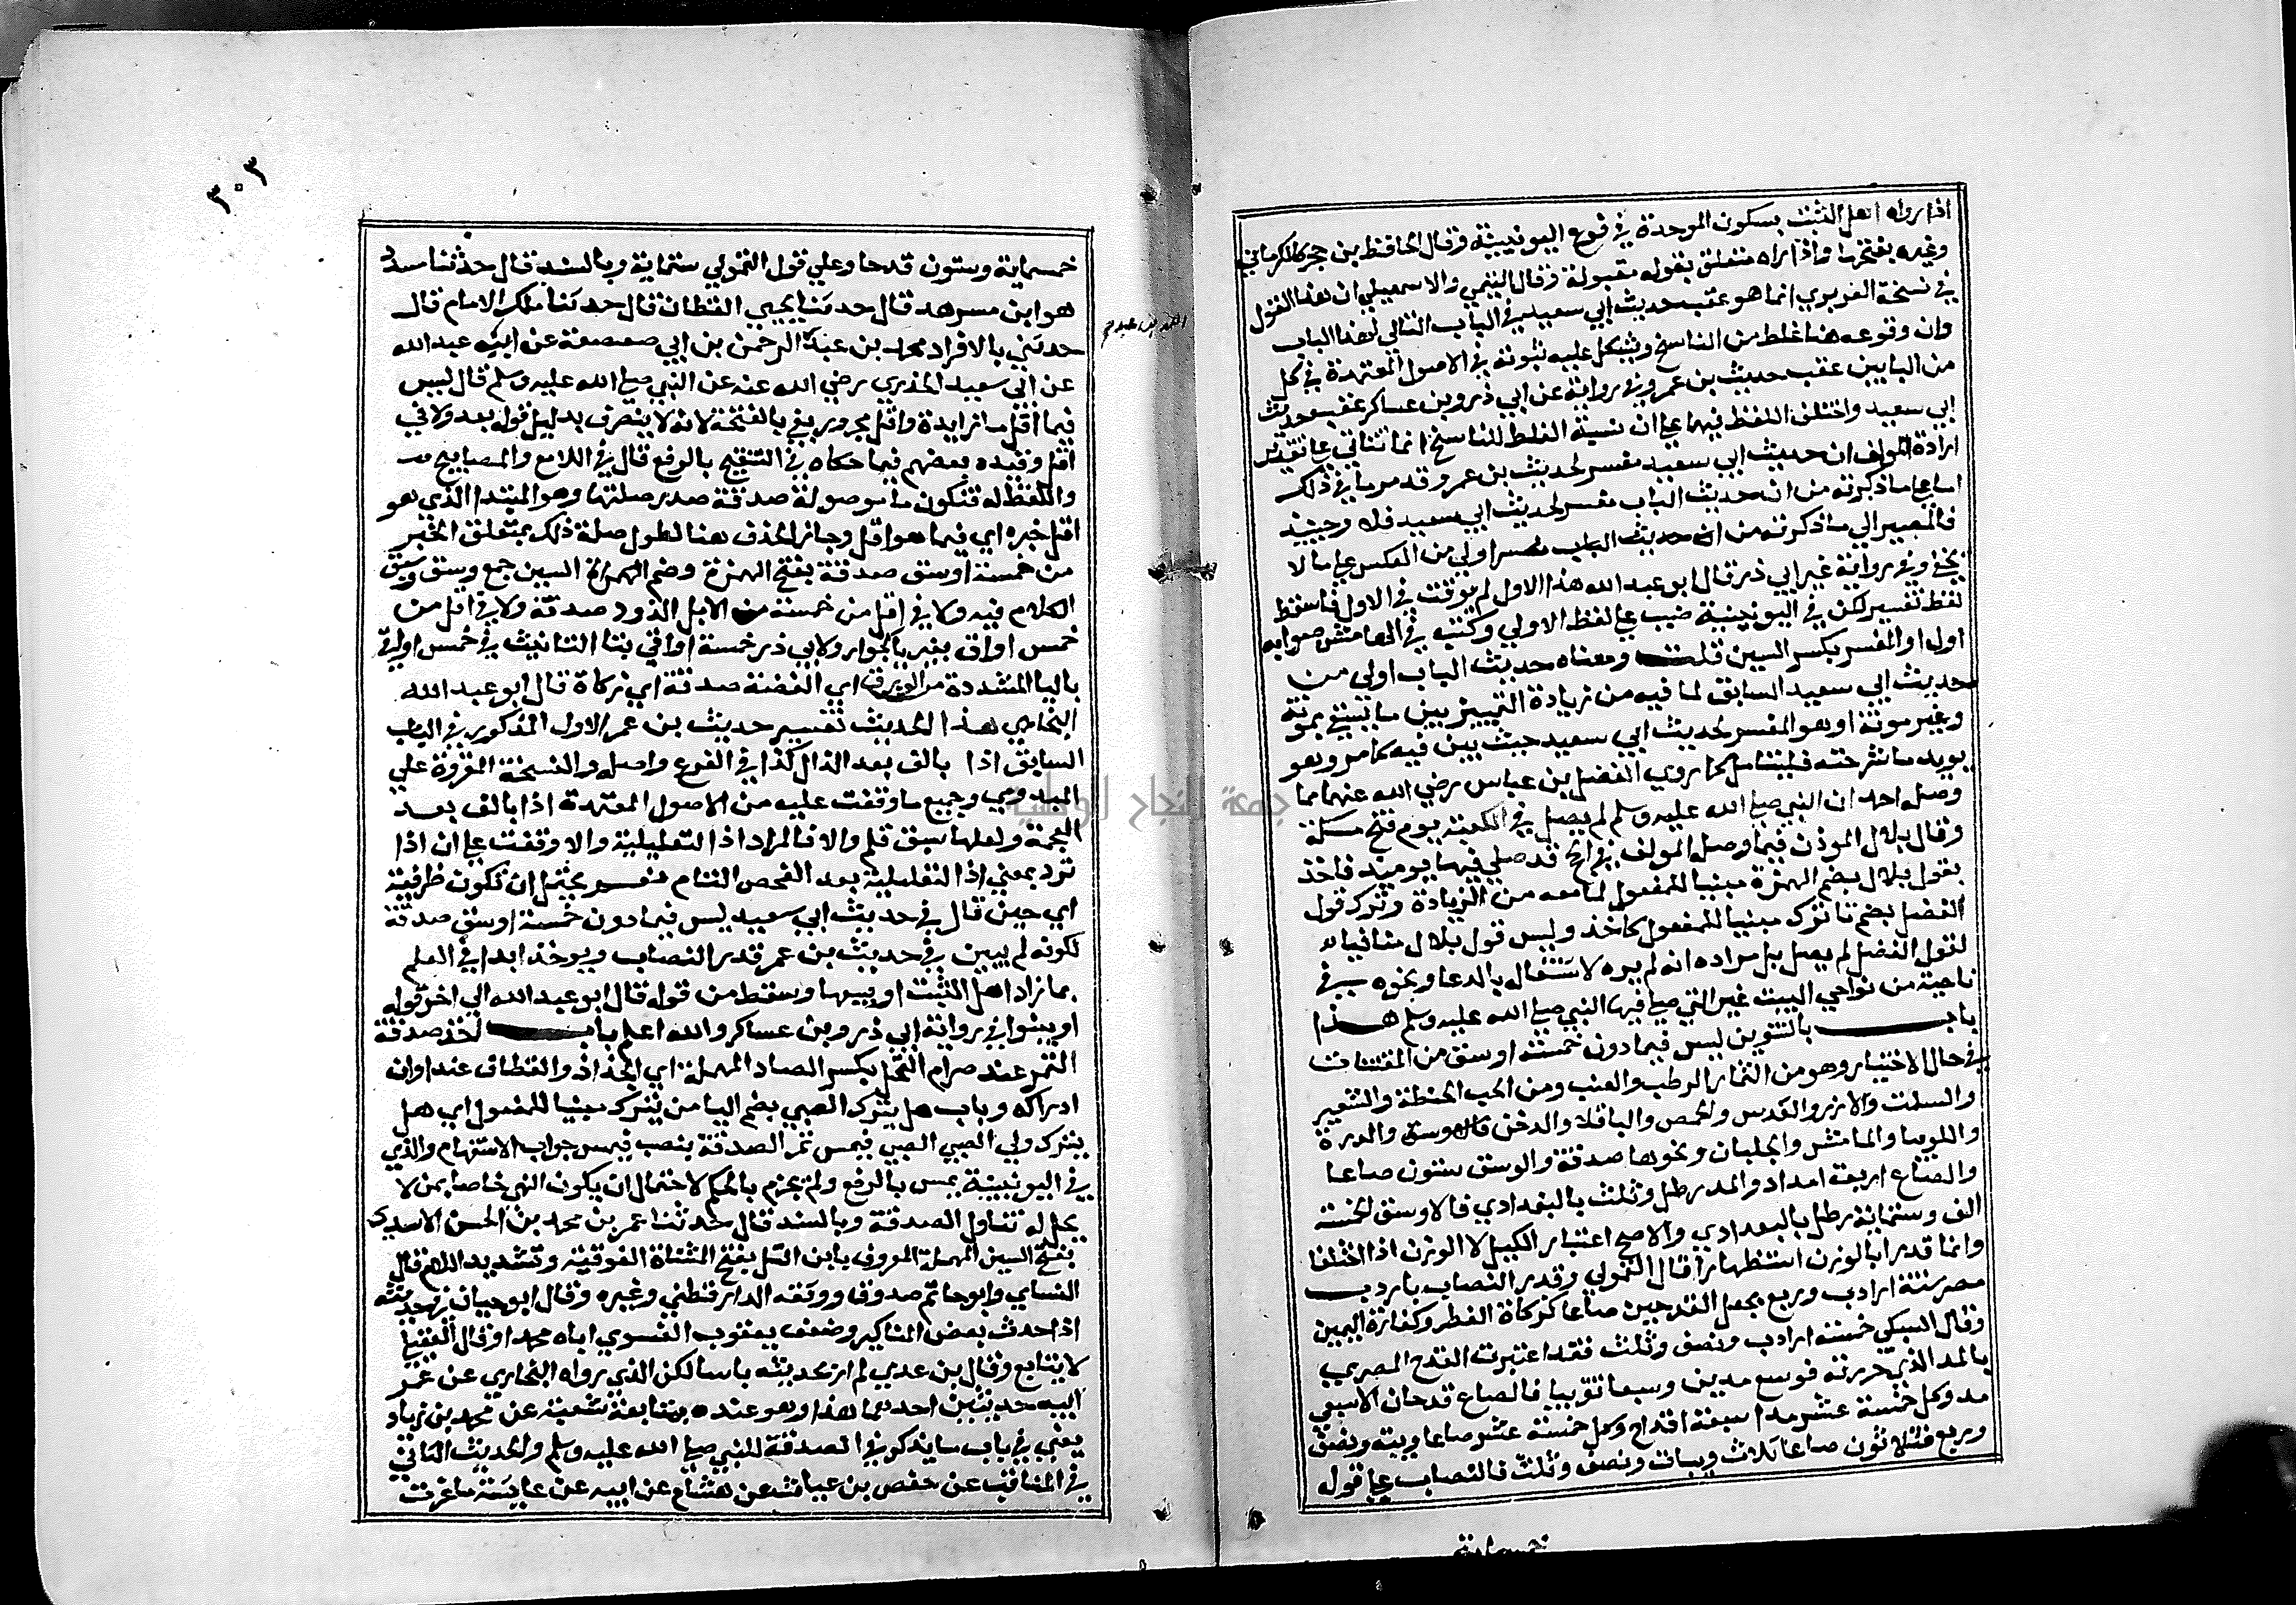 اذا رواه اهل الثبت بسكون الموحدة في فرع اليونينية وقال الحافظ بن حجر كالكرماني
وغيره بفتحها واذا رواه متعلق بقوله مقبولة وقال التيمي والاسمعيلي ان هذا القول
في نسخة الفربري انما هو عقب حديث ابي سعيد في الباب التالي لهذا الباب
وان وقوعه هنا غلط من الناسخ ويشكل عليه ثبوته في الاصول المعتمدة في كل
من البابين عقب حديث بن عمر وفي رواية عن ابي ذر وبن عساكر عقب حديث
ابي سعيد واختلف اللفظ فيهما علي ان نسبة الغلط للناسخ انما تتاتي علي تقدير
ارادة المولف ان حديث ابي سعيد مفسر لحديث بن عمر وقد مر ما في ذلك
اما علي ما ذكرته من ان حديث الباب مفسر لحديث ابي سعيد فلا وحينئذ
فالمصير الي ما ذكرته من ان حديث الباب مفسر اولي من العكس علي ما لا
يخفي وفي رواية غير ابي ذر قال ابو عبد الله هذا الاول لم يوقت في الاول فاسقط
لفظ تفسير لكن في اليونينية ضبب علي لفظ الاولي وكتب في الهامش صوابه
اول او المفسر بكسر السين قلت ومعناه حديث الباب اولي من
حديث ابي سعيد السابق لما فيه من زيادة التمييز بين ما يسقي بمونة
وغير مونة او هو المفسر لحديث ابي سعيد حيث بين فيه كما مر وهو
يويد ما شرحته فليتامل كما روي الفضل بن عباس رضي الله عنهما مما
وصله احمد ان النبي صلي الله عليه وسلم لم يصل في الكعبة يوم فتح مكة
وقال بلال الموذن فيما وصله المولف في الحج قد صلي فيها يوميذ فاخذ
بقول بلال بضم الهمزة مبنيا للمفعول لما معه من الزيادة وترك قول
الفضل بضم تا ترك مبنيا للمفعول كاخذ وليس قول بلال منافيا
لقول الفضل لم يصل بل مراده انه لم يره لاشتغاله بالدعا ونحوه في
ناحية من نواحي البيت غير التي صلي فيها النبي صلي الله عليه وسلم هذا
باب بالتنوين ليس فيما دون خمسة اوسق من المقتات
في حال الاختيار وهو من الثمار الرطب والعنب ومن الحب الحنطة والشعير
والسلت والارز والعدس والحمص والباقلا والدخن والذرة
واللوبيا والماش والجلبان ونحوها صدقة والوسق ستون صاعا
والصاع اربعة امداد والمد رطل وثلث بالبغدادي فالاوسق الخمسة
الف وستماية رطل بالبغدادي والاصح اعتبار الكيل لا الوزن اذا اختلفا
وانما قدر بالوزن استظهارا قال القمولي وقدر النصاب باردب
مصر ستة ارادب وربع بجعل القدحين صاعا كزكاة الفطر وكفارة اليمين
وقال السبكي خمسة ارادب ونصف وثلث فقد اعتبرت القدح المصري
بالمد الذي حررته فوسع مدين وسبعا تقريبا فالصاع قدحان الاسبعي
مد وكل خمسة عشر مدا سبعة اقداح وكل خمسة عشر صاعا ويبة ونصف
وربع فثلاثون صاعا ثلاث ويبات ونصف وثلث فالنصاب علي قوله
خمسماية
٣٠٣
خمسماية وستون قدحا وعلي قول القمولي ستماية وبالسند قال حدثنا مسدد
هو ابن مسرهد قال حدثنا يحيي القطان قال حدثنا ملك الامام قال
حدثني بالافراد محمد بن عبد الرحمن بن ابي صعصعة عن ابيه عبد الله
عن ابي سعيد الخدري رضي الله عنه عن النبي صلي الله عليه وسلم قال ليس
فيما اقل ما زايدة واقل مجرور بفي بالفتحة لانه لا ينصرف بدليل قوله بعد ولا في
اقل وقيده بعضهم فيما حكاه في التنقيح بالرفع قال في اللامع والمصابيح
واللفظ له فتكون ما موصولة صدقة صدر صلتها وهو المبتدا الذي هو
اقل خبره اي فيما هو اقل وجاز الحذف هنا لطول صلة ذلك بمتعلق الخبر
من خمسة اوسق صدقة بفتح الهمزة وضم السين جمع وسق وسبق
الكلام فيه ولا في اقل من خمسة من الابل الذود صدقة ولا في اقل من
خمس اواق بغير يا كجوار ولابي ذر خمسة اواقي بتا التانيث في خمس اواقي
باليا المشددة من الورق اي الفضة صدقة اي زكاة قال ابو عبد الله
البخاري هذا الحديث تفسير حديث بن عمر الاول المذكور في الباب
السابق اذا بالف بعد الذال كذا في الفرع واصله والنسخة المقروة علي
الميدومي وجميع ما وقفت عليه من الاصول المعتمدة اذا بالف بعد
المعجمة ولعلها سبق قلم والا فالمراد اذ التعليلية والا وقفت علي ان اذا
ترد بمعني اذ التعليلية بعد الفحص التام نعم يحتمل ان تكون ظرفية
اي حين قال في حديث ابي سعيد ليس فيما دون خمسة اوسق صدقة
لكونه لم يبين في حديث بن عمر قدر النصاب ويوخذ ابدا في العلم
بما زاد اهل الثبت او بينوا وسقط من قوله قال ابو عبد الله الي اخر قوله
او بينوا في رواية ابي ذر وبن عساكر والله اعلم باب اخذ صدقة
التمر عند صرام النخل بكسر الصاد المهملة اي الجذاذ والقطاف عند اوان
ادراكه وباب هل يترك الصبي بضم اليا من يترك مبنيا للمفعول اي هل
يترك ولي الصبي الصبي فيمس تمر الصدقة بنصب فيمس جواب الاستفهام والذي
في اليونينية يمس بالرفع ولم يجزم بالحكم لاحتمال ان يكون النهي خاصا بمن لا
يحل له تناول الصدقة وبالسند قال حدثنا عمر بن محمد بن الحسن الاسدي
بفتح السين المهملة المعروف بابن التل بفتح المثناة الفوقية وتشديد اللام قال
النساي وابو حاتم صدوق ووثقه الدارقطني وغيره وقال ابو حبان في حديثه
اذا حدث بعض المناكير وضعف يعقوب الفسوي اباه محمدا وقال العقيلي
لا يتابع وقال بن عدي لم ار بحديثه باسا لكن الذي رواه البخاري عن عمر
ابيه حديثين احدهما هذا وهو عنده بمتابعة شعبة عن محمد بن زياد
يعني في باب ما يذكر في الصدقة للنبي صلي الله عليه وسلم والحديث الثاني
في المناقب عن حفص بن غياث عن هشام عن ابيه عن عايشة ما غرت
جامعة النجاح الوطنية